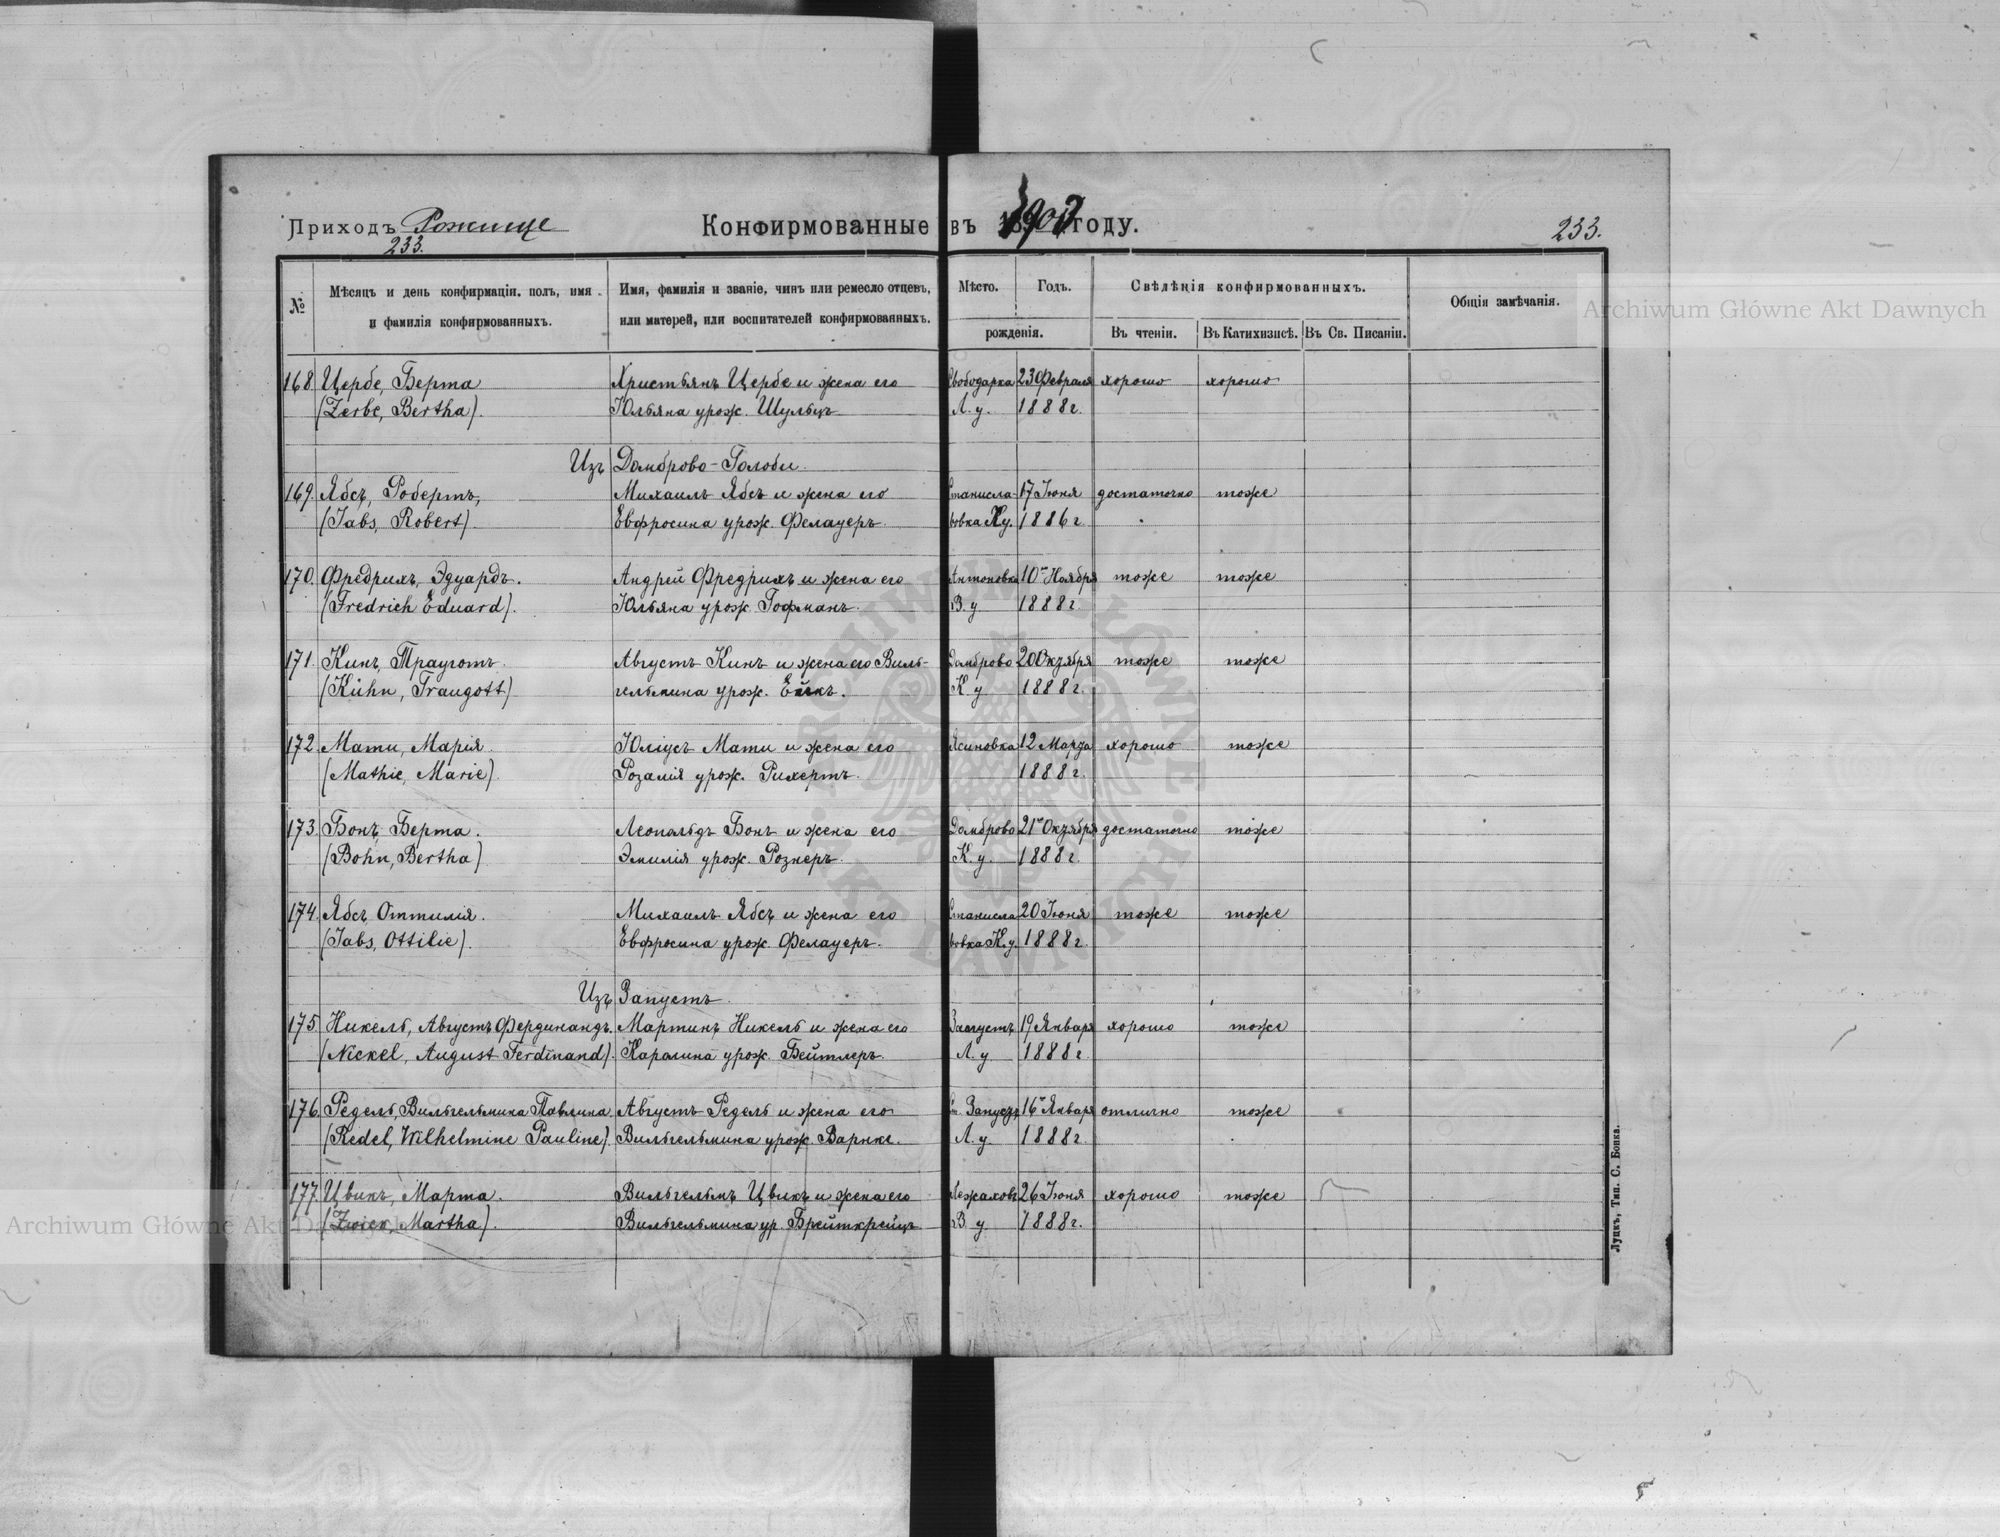 Приходъ Рожище
233.
Конфирмованные въ 1903 году.
233.
№
Мѣсяцъ и день конфирмаціи, полъ, имя
и фамилія конфирмованныхъ.
Имя, фамилія и званіе, чинъ или ремесло отцевъ,
или матерей, или воспитателей конфирмованныхъ.
Мѣсто. Годъ.
рожденія.
Свѣдѣнія конфирмованныхъ.
Въ чтеніи. Въ Катихизисѣ. Въ Св. Писаніи.
Общія замѣчанія.
168. Цербе, Берта Христьянъ Цербе и жена его Свободарка 23 Февраля хорошо хорошо
(Zerbe, Bertha). Юльяна урож. Шульцъ Л. у. 1888 г.
Изъ Домброво-Голобы
169. Ябсъ, Робертъ, Михаилъ Ябсъ и жена его Станисла- 17 Іюня достаточно тоже
(Jabs, Robert). Евфросина урож. Фелауеръ. вовка К у. 1886 г.
170. Фредрихъ, Эдуардъ. Андрей Фредрихъ и жена его Антоновка 10го Ноября тоже тоже
(Fredrich Eduard). Юльяна урож. Гофманъ. В. у. 1888 г.
171. Кинъ, Трауготъ. Августъ Кинъ и жена его Виль- Домброво 20 Октября тоже тоже
(Kühn, Traugott) гельмина урож. К. у 1888 г.
172. Мати, Марія. Юліусъ Мати и жена его Ясиновка 12 Марта хорошо тоже
(Mathie, Marie). Розалія урож. Рихертъ. 1888 г.
173. Бонъ, Берта. Леопольдъ Бонъ и жена его Домброво 21го Октября достаточно тоже
(Bohn, Bertha) Эмилія урож. Рознеръ. К. у. 1888 г.
174. Ябсъ Оттилія. Михаилъ Ябсъ и жена его Станисла 20 Іюня тоже тоже
(Jabs, Ottilie). Евфросина урож. Фелауеръ. вовка К. у. 1888 г.
Изъ Запустъ.
175. Никель, Августъ Фердинандъ. Мартинъ Никель и жена его Запустъ 19 Января хорошо тоже
(Nickel, August Ferdinand). Каролина урож. Бейтлеръ. Л. у 1888 г.
176. Редель, Вильгельмина Павлина. Августъ Редель и жена его Запустъ 16го Января отлично тоже
(Redel, Wilhelmine Pauline). Вильгельмина урож. Варнке. Л. у. 1888 г.
177. Цвикъ, Марта. Вильгельмъ Цвикъ и жена его 26 Іюня хорошо тоже
(Zwick, Martha). Вильгельмина ур. Брейткрейцъ В. у 1888 г.
Луцкъ, Тип. С. Бонка.
Archiwum Główne Akt Dawnych
Archiwum Główne Akt Dawnych
ARCHIWUM GŁÓWNE · AKT DAWNYCH ·